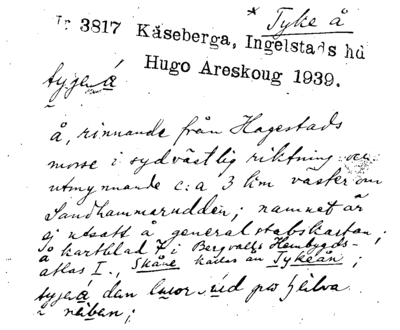 * Tyke å
3817 Kåseberga, Ingelstads hd
Hugo Areskoug 1939.
tygeå
å, rinnande från Hagestads
mosse i sydvästlig riktning och
utmynnande c:a 3 km väster om
Sandhammarudden; namnet är
ej utsatt å generalstabskartan;
å kartblad 7 i Bergvalls Hembygds-
atlas I., Skåne kallas ån Tykeån;
tygeå dan